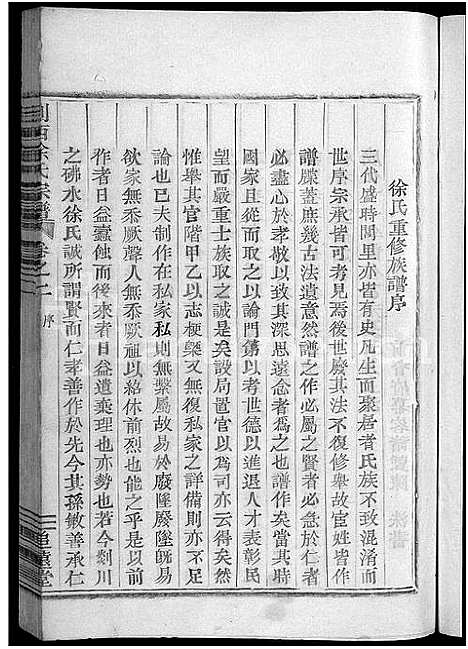 徐氏重修族譜序
三代盛時閭里亦皆有史凡生而聚居者氏族不致混淆而
世序宗承皆可考見焉後世其法不復修舉故宦姓皆作
譜牒蓋庶幾古法遺意然譜之作必屬之賢者必急於仁者
必盡心於孝者或以致其深思遠念者爲之也譜作矣當其時
國家且從以論門第以考世德以進退人才表彰民
望而嚴重士族取之誠是矣設局置官以爲司亦云得矣然
惟舉其官階甲乙以志梗槩又無復私家之詳備則亦無
論也已夫制作在私家私則無繫屬故易於廢墜廢墜旣易
欲家無忝厥聲人無忝厥祖以俟前烈也能之乎是以前
作者日益蠹蝕而後來者日益遺棄理也亦勢也若今剡川
之砩水徐氏誠所謂賢而仁孝善作於先今其孫敏善承仁
剡西徐氏宗譜
卷之一
序
追遠堂